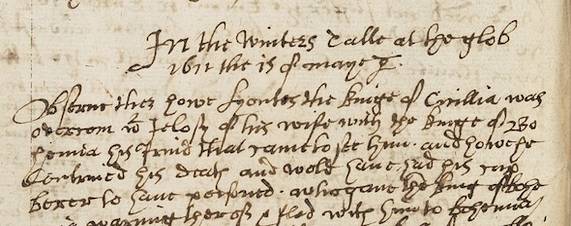 In the Winters Talle at the glob
1611 the 15 of maye ☿
Observe ther howe Lyontes the kinge of Cicillia was
overcom wt Jelosy of his wife with the kinge of Bo
hemia his frind that came to see him. and howe he
Contrived his death and wold have had his cup
berer to have poisoned. who gave the king of bohe
warning therof & fled with him to bohemia